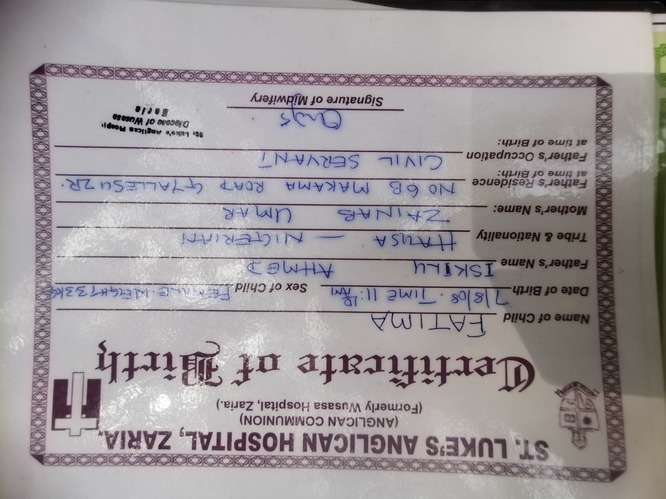 ST. LUKE'S ANGLICAN HOSPITAL, ZARIA.
(ANGLICAN COMMUNION)
(Formerly Wusasa Hospital, Zaria.)
Certificate of Birth
Name of Child FATIMA
Date of Birth 7/8/08. TIME 11:10 AM Sex of Child FEMALE. WEIGHT 3.3KG
Father's Name ISKILU AHMED
Tribe & Nationality HAUSA — NIGERIAN
Mother's Name: ZAINAB UMAR
Father's Residence at time of Birth: NO 6B MAKAMA ROAD
Father's Occupation at time of Birth: CIVIL SERVANT
St. Luke's Anglican Hospi
Diocese of Wusasa
Zaria
Signature of Midwifery